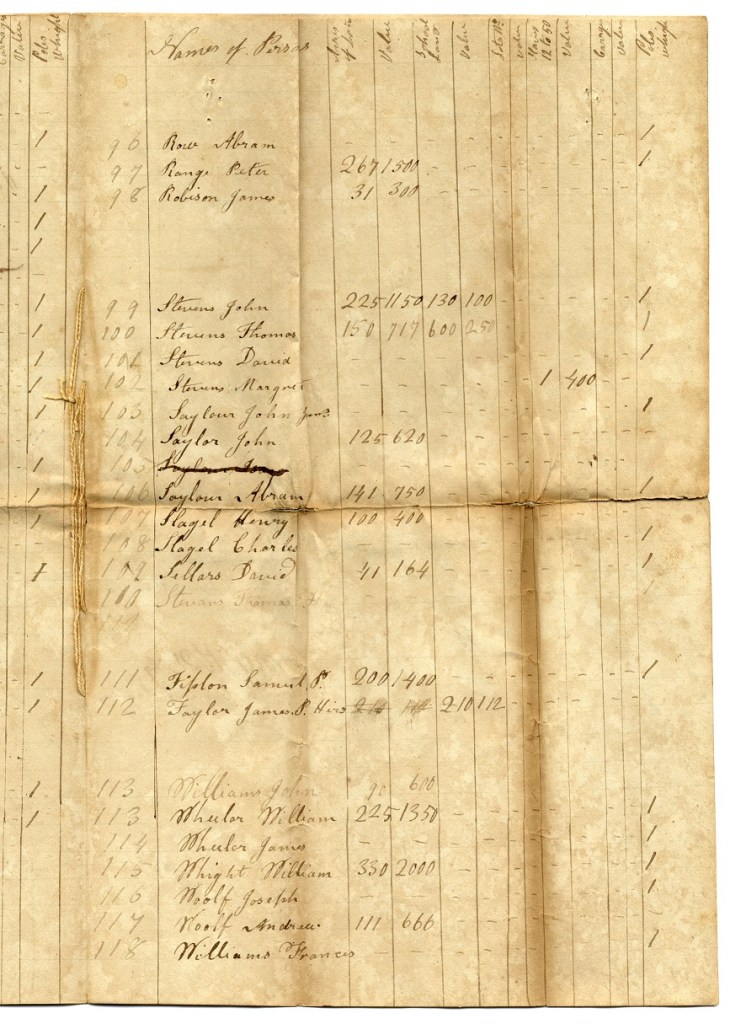 Value Pols Whight Names of Persons Acres of Land Value School Land Value Lots No. value Slaves 12 to 50 Value Carrage value Pols Whight
1 96 Row Abram - - - - - - - - - - 1
97 Range Peter 267 1500 - - - - - - - - 1
1 98 Robison James 31 300 - - - - - - - -
1
1
1 99 Stevens John 225 1150 130 100 - - - - - - 1
1 100 Stevens Thomas 150 717 600 250 - - - - - - 1
1 101 Stevens David - - - - - - - - - - 1
1 102 Stevens Margret - - - - - - 1 400 - -
1 103 Saylour John Junr - - - - - - - - - - 1
104 Saylor John 125 620 - - - - - - - -
1 105
1 106 Saylour Abram 141 750 - - - - - - - - 1
1 107 Slagel Henry 100 400 - - - - - - - -
108 Slagel Charles - - - - - - - - - - 1
1 109 Sellars David 41 164 - - - - - - - - 1
110 Stevans Thomas
1 111 Tipton Samuel P. 200 1400 - - - - - - - - 1
1 112 Taylor James P. Hirs 210 112 - - - - - -
1 113 Williams John 90 600
1 113 Wheeler William 225 1350 - - - - - - - - 1
114 Wheeler James - - - - - - - - - - 1
115 Whight William 330 2000 - - - - - - - - 1
116 Woolf Joseph - - - - - - - - - - 1
117 Woolf Andrew 111 666 - - - - - - - -
118 Williams Frances - - - - - - - - - - 1